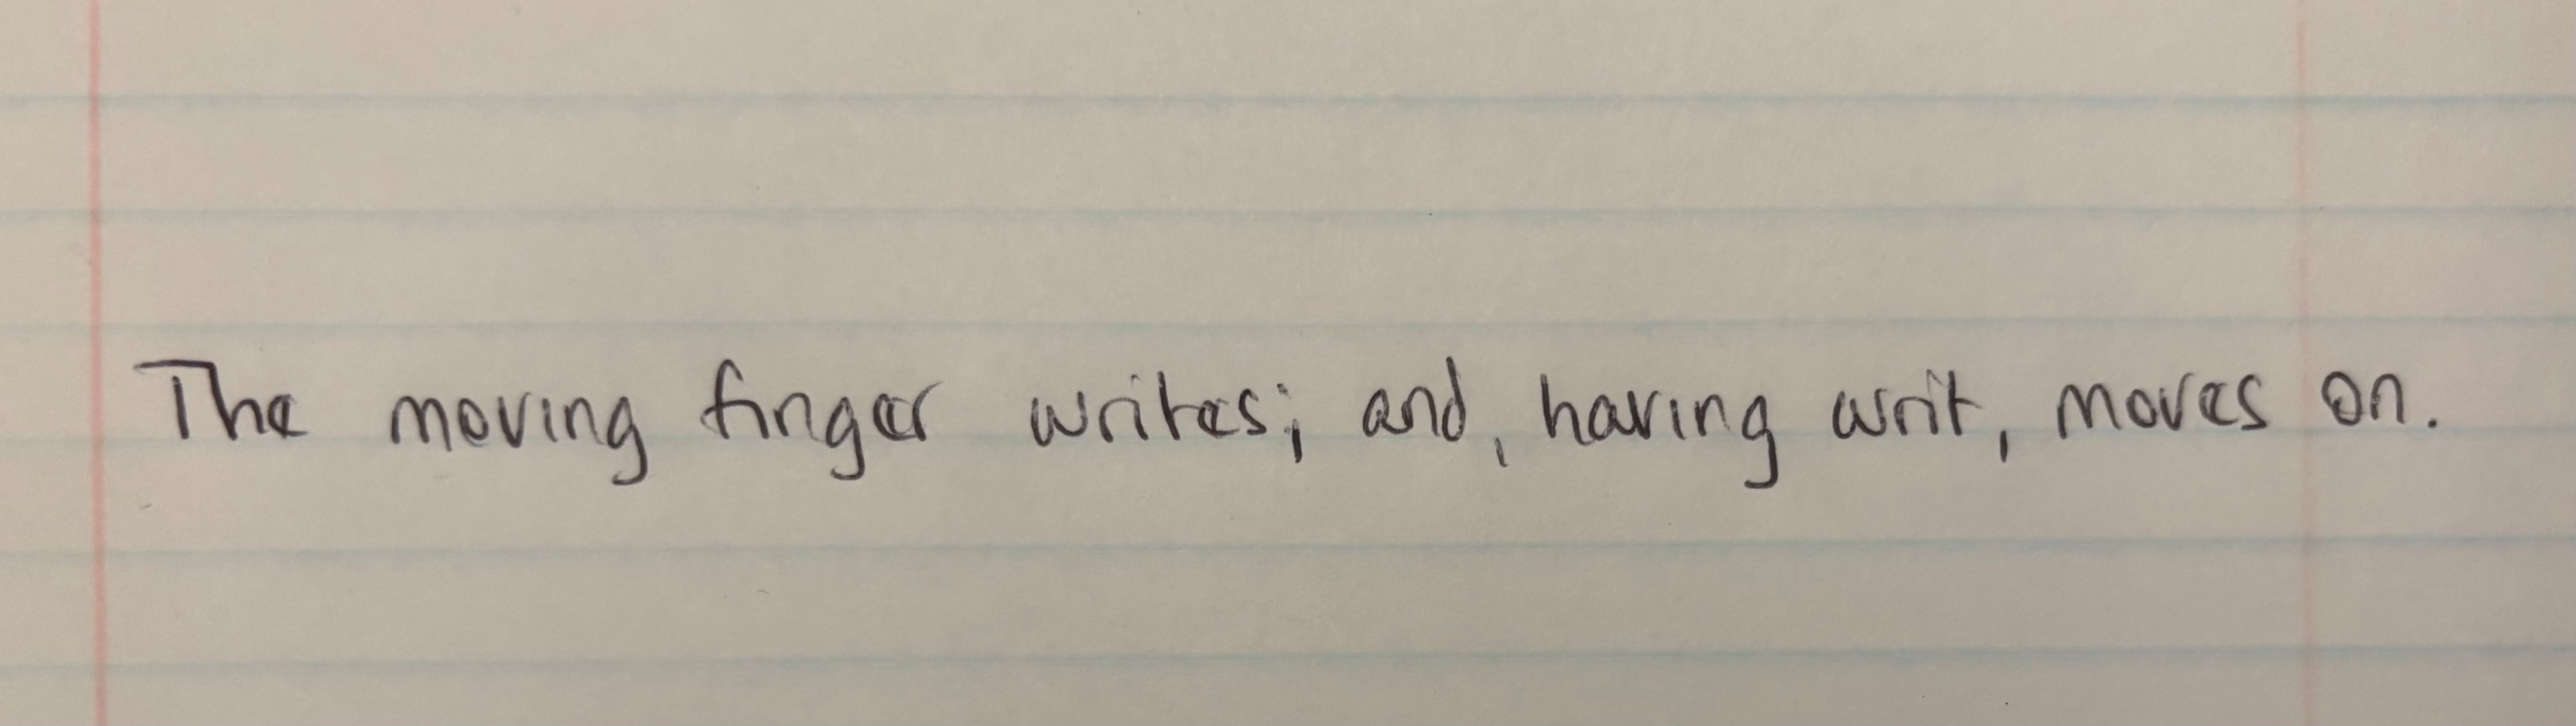 The moving finger writes; and, having writ, moves on.